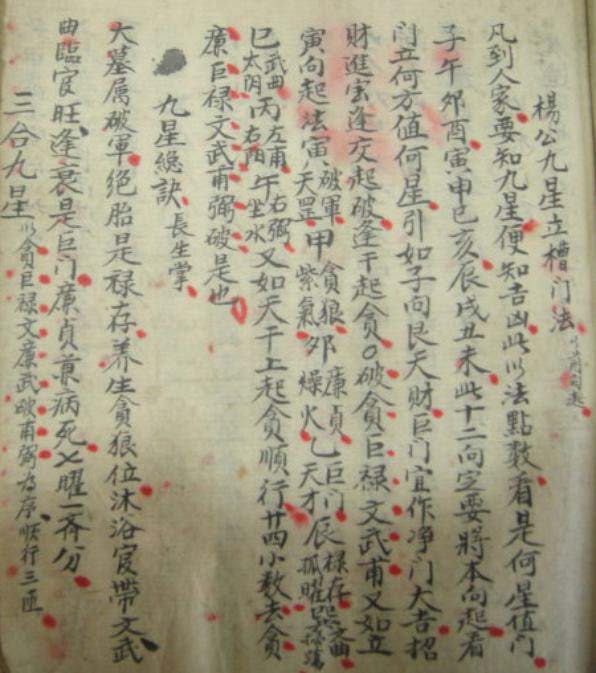 楊公九星立槽门法
凡到人家要知九星便知吉凶此以法點数看是何星值门
子午夘酉寅申巳亥辰戌丑未此十二向定要將本向起看
门立何方值何星引如子向艮天財巨门宜作净门大吉招
財進宝逢交起破逢干起貪〇破貪巨禄文武甫又如立
寅向起法寅破軍天罡甲貪狼紫氣夘廉貞燥火乙巨门天才辰禄存孤曜巽文曲掃蕩
巳武曲太阴丙左甫右阳午右弼坐水又如天干上起貪順行廿四小数去貪
廉巨禄文武甫弼破是也
九星總訣長生掌
大墓属破軍絶胎是禄存养生貪狼位沐浴㝎帶文武
曲臨官旺逢衰是巨门廉貞兼病死七曜一斉分
三合九星以貪巨禄文廉武破甫弼為序順行三匝